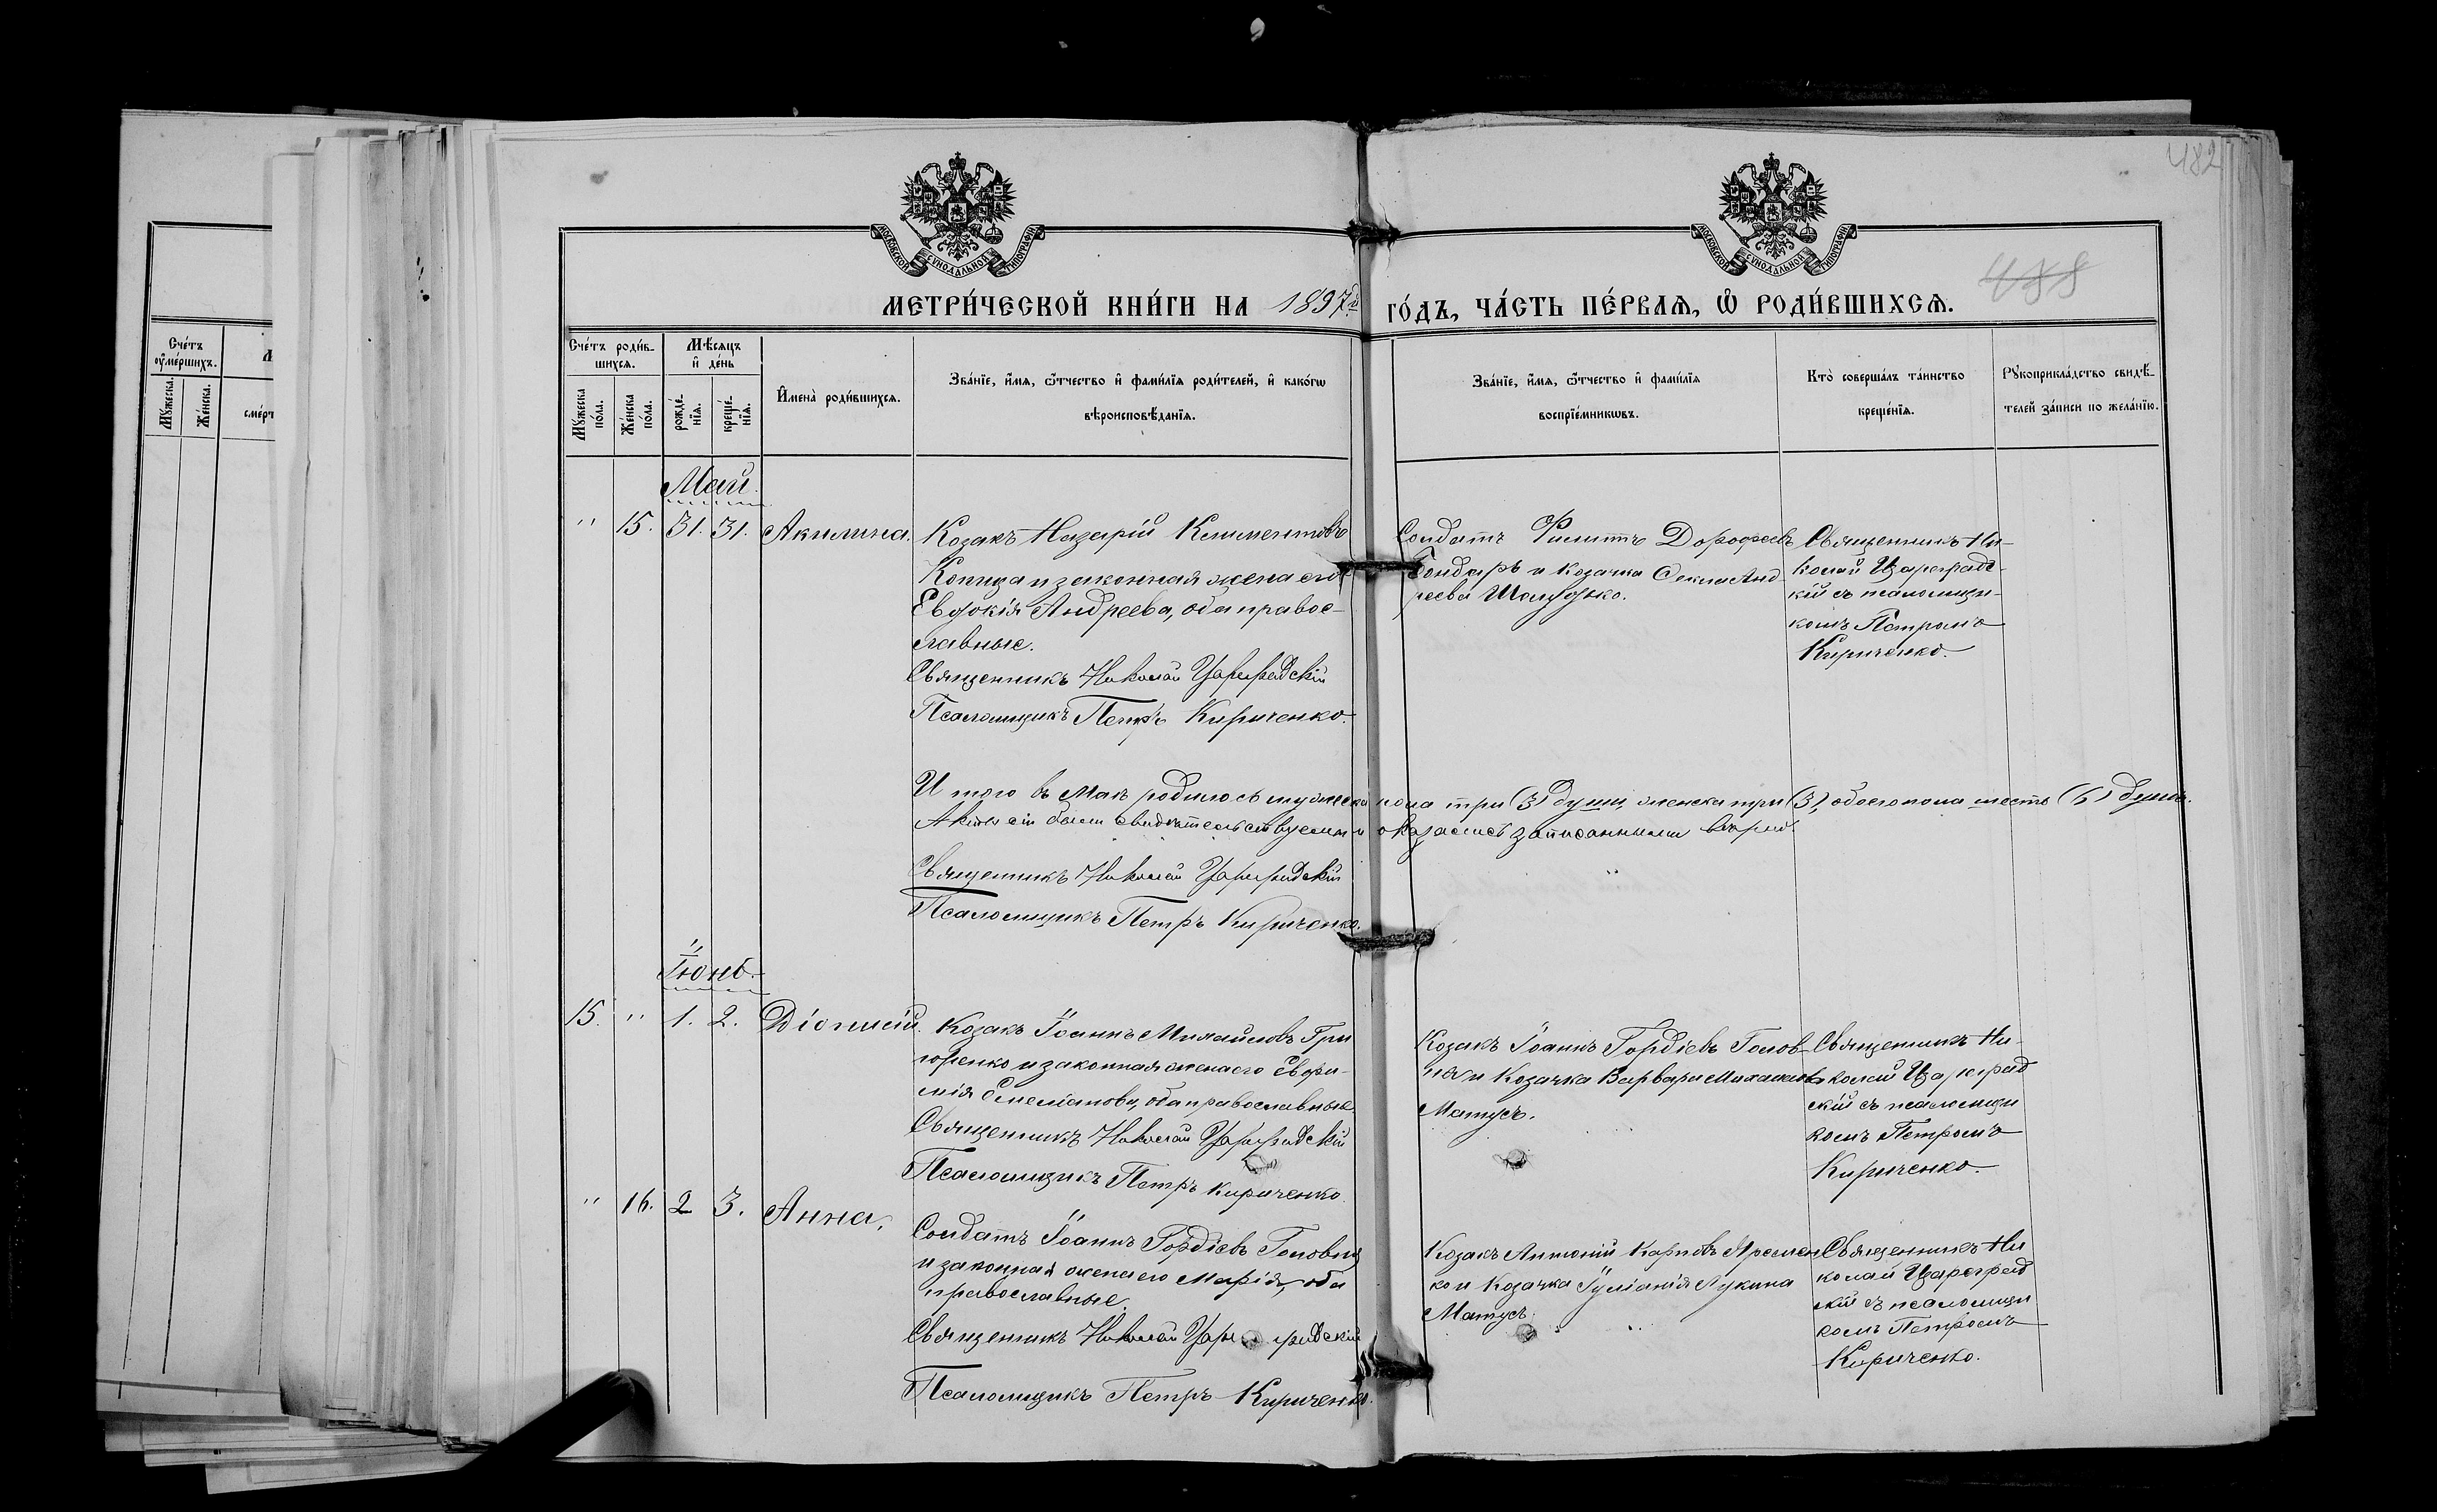 482
488
МОСКОВСКОЙ СѴНОДАЛЬНОЙ ТИПОГРАФІИ
МОСКОВСКОЙ СѴНОДАЛЬНОЙ ТИПОГРАФІИ
МЕТРИ́ЧЕСКОЙ КНИ́ГИ НА 1897й ГО́ДЪ, ЧА́СТЬ ПЕ́РВАѦ, Ѽ РОДИ́ВШИХСѦ.
Сче́тъ оумершихъ.
Мꙋжеска.
Же́нска.
смерт
Сче́тъ роди́в-
шихсѧ.
Мꙋ́жеска по́ла.
Же́нска по́ла.
Мѣ́сѧцъ
и҆ де́нь
рожде́-
нїѧ.
креще́-
нїѧ.
И҆мена̀ роди́вшихсѧ.
Зва́нїе, и҆́мѧ, ѻ҆́тчество и҆ фами́лїѧ роди́телей, и҆ како́гѡ
вѣроисповѣ́данїѧ.
Зва́нїе, и҆́мѧ, ѻ҆́тчество и҆ фами́лїѧ
воспрїе́мникѡвъ.
Кто̀ соверша́лъ та́инство
креще́нїѧ.
Рꙋкоприкла́дство свидѣ́-
телей за́писи по жела́нїю.
Май.
" 15. 31. 31. Акилина.
Козакъ Назарій Климентовъ
Копица и законная жена его
Евдокія Андреева, оба правос-
лавные.
Священникъ Николай Цареградскій
Псаломщикъ Петръ Кириченко.
Солдатъ Филиппъ Дорофеевъ
Бондарь и козачка Текла Анд-
реева
Священникъ Ни-
колай Цареград-
кій съ псаломщи-
комъ Петромъ
Кириченко.
И того въ Маѣ родилось мужеска пола три (3) души женска три (3), обоего пола шесть (6) душъ.
Акты сіи были свидѣтельствуемы и оказались записанными вѣрно.
Священникъ Николай Цареградскій
Псаломщикъ Петръ Кириченко.
Іюнь.
15. " 1. 2. Діонисій.
Козакъ Іоаннъ Михайловъ Гри
горенко и законная жена его Евфи-
мія Емеліанова, оба православные.
Священникъ Николай Цареградскій
Псаломщикъ Петръ Кириченко.
Козакъ Іоаннъ Гордіевъ Голов-
ня и Козачка Варвара Михаилова
Матусь.
Священникъ Ни-
колай Цареград
скій съ псаломщи
комъ Петромъ
Кириченко.
" 16. 2 3. Анна.
Солдатъ Іоаннъ Гордіевъ Головня
и законная жена его Марія, оба
православные.
Священникъ Николай Цареградскій
Псаломщикъ Петръ Кириченко.
Козакъ Антоній Карповъ Яремен
ко и Козачка Іуліанія Лукина
Матусь.
Священникъ Ни
колай Цареград
скій съ псаломщи
комъ Петромъ
Кириченко.